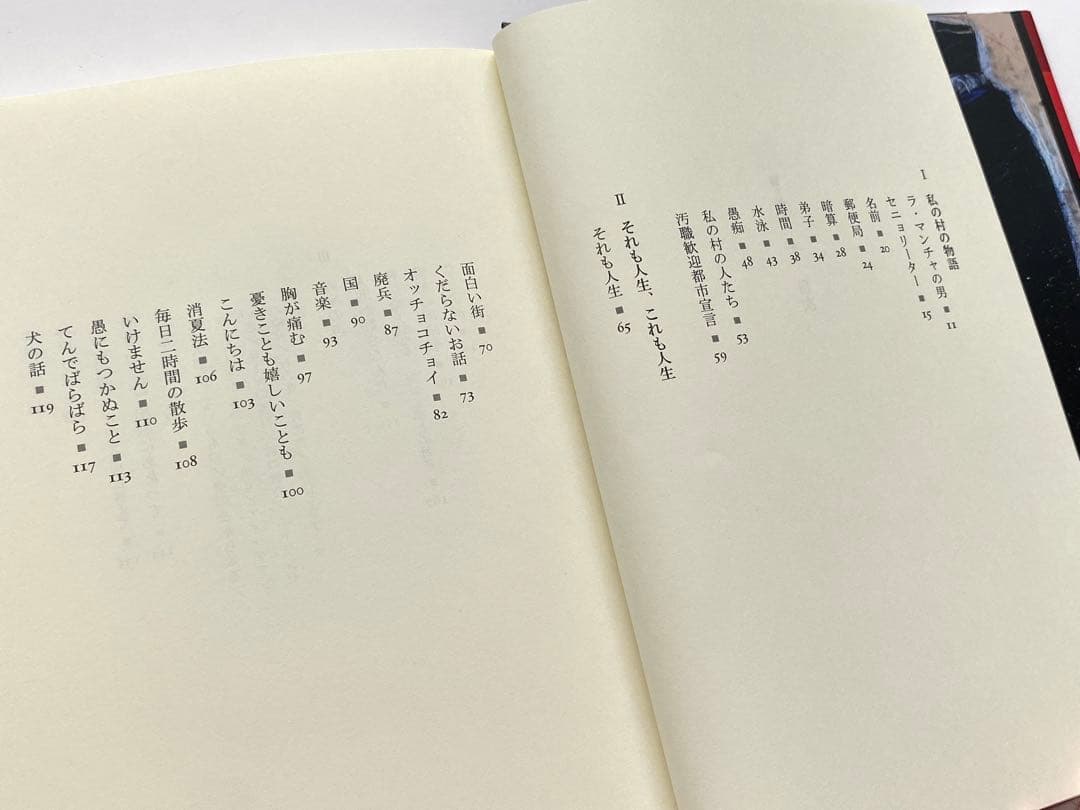 I 私の村の物語
ラ・マンチャの男 ■ 11
セニョリーター ■ 15
名前 ■ 20
郵便局 ■ 24
暗算 ■ 28
弟子 ■ 34
時間 ■ 38
水泳 ■ 43
愚痴 ■ 48
私の村の人たち ■ 53
汚職歓迎都市宣言 ■ 59
II それも人生、これも人生
それも人生 ■ 65
面白い街 ■ 70
くだらないお話 ■ 73
オッチョコチョイ ■ 82
廃兵 ■ 87
国 ■ 90
音楽 ■ 93
胸が痛む ■ 97
憂きことも嬉しいことも ■ 100
こんにちは ■ 103
消夏法 ■ 106
毎日二時間の散歩 ■ 108
いけません ■ 110
愚にもつかぬこと ■ 113
てんでばらばら ■ 117
犬の話 ■ 119